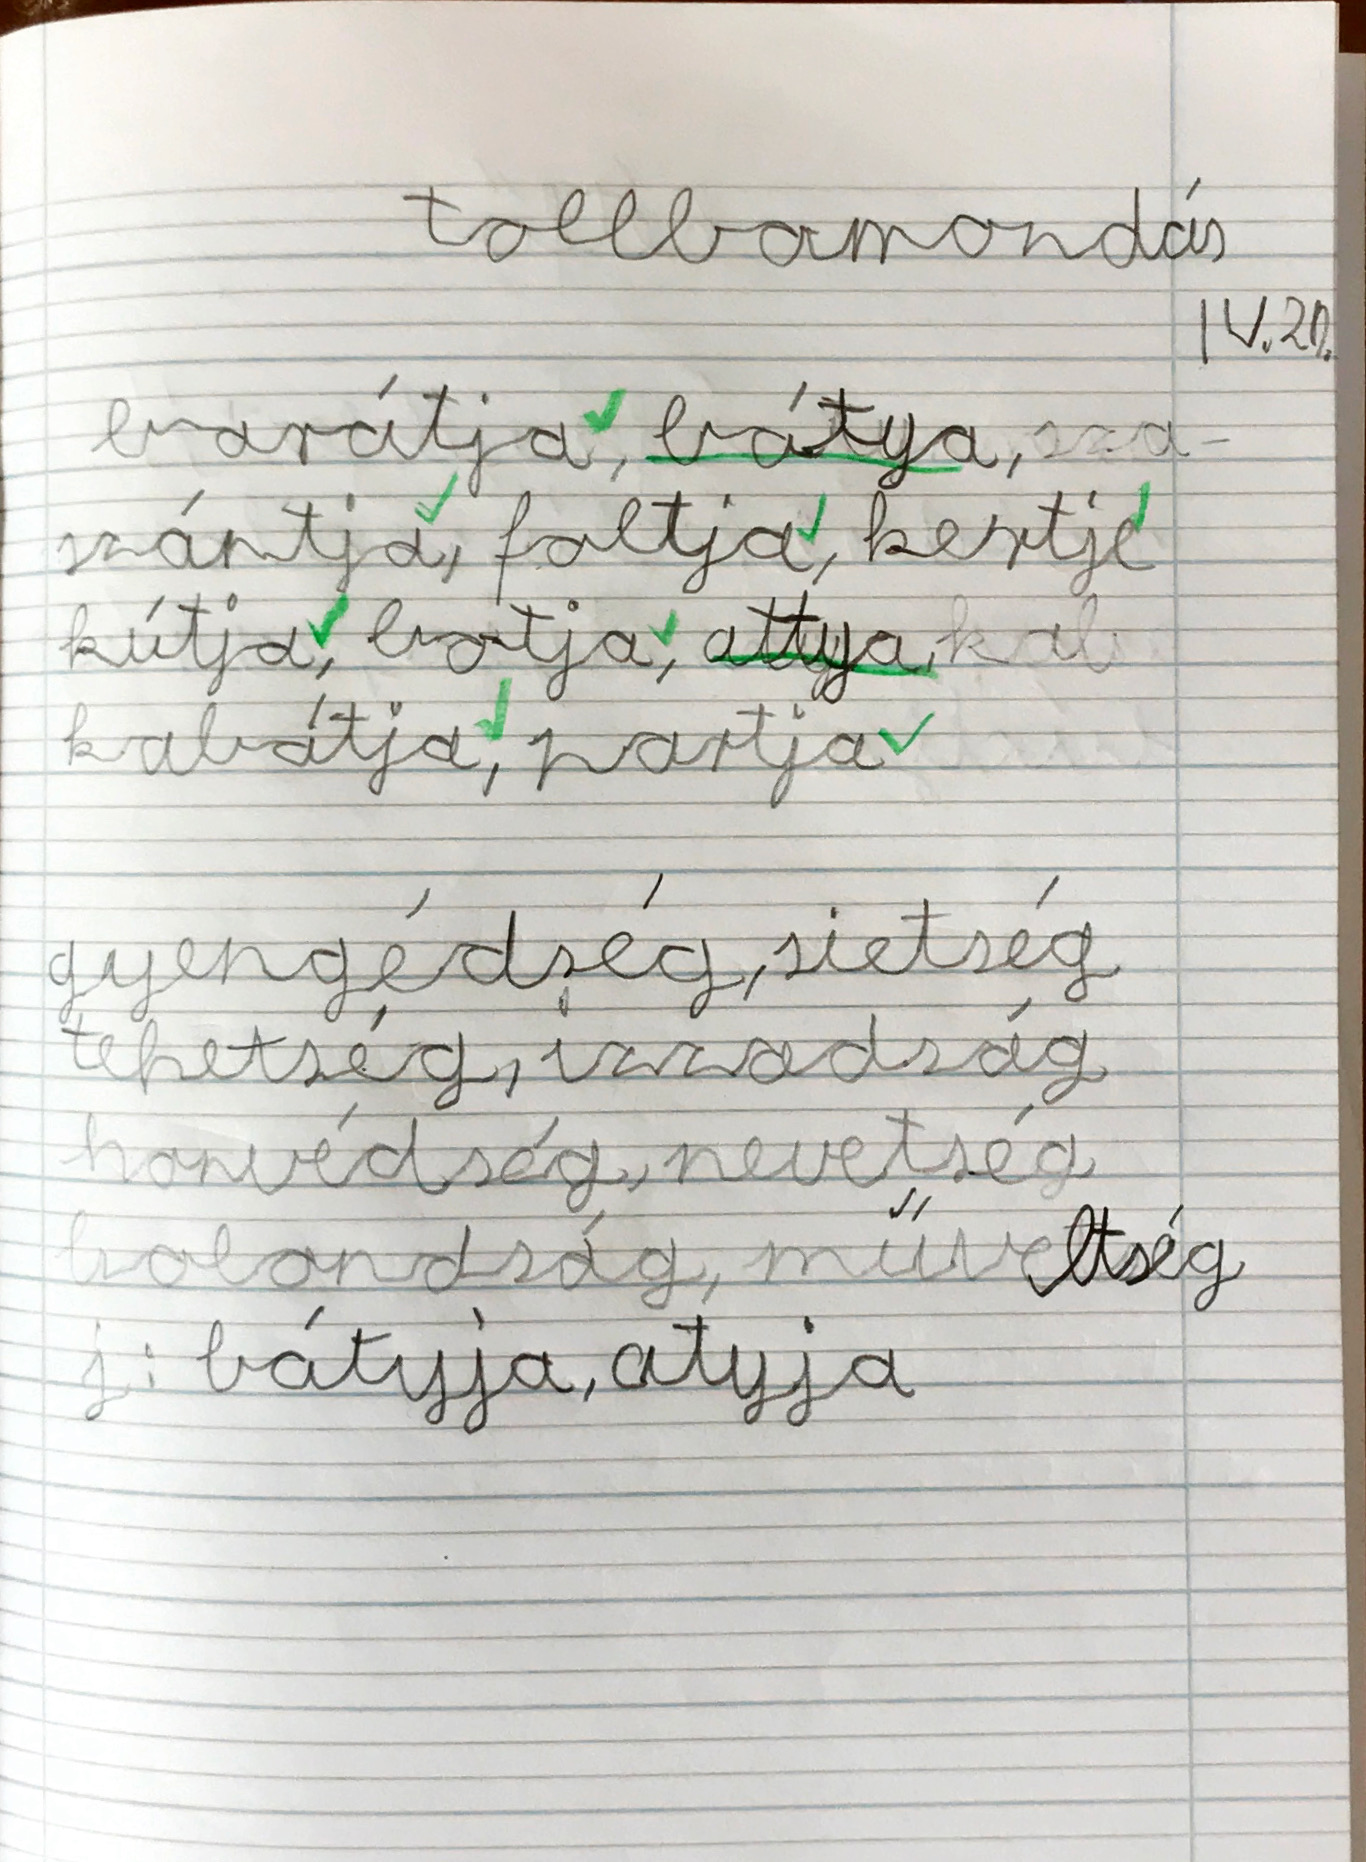 tollbamondás
IV.20.
barátja, bátya, sza-
szántja, foltja, kertje
kútja, botja, attya, kab
kabátja, partja
gyengédség, sietség
tehetség, izzadság
honvédség, nevetség
bolondság, műveltség
j: bátyja, atyja